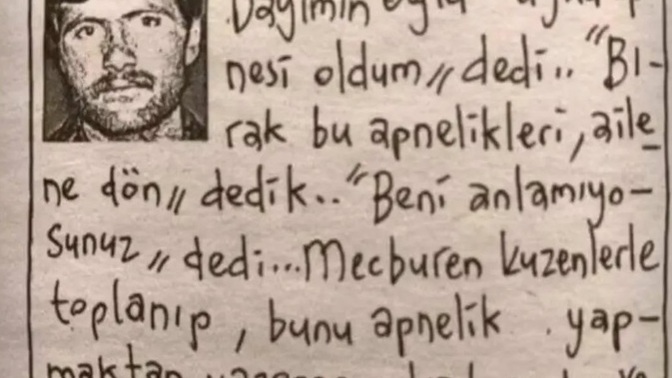 Dayımın oğlu
nesi oldum,, dedi.. "Bı-
rak bu apnelikleri, aile
ne dön,, dedik.. "Beni anlamıyo-
sunuz,, dedi... Mecburen kuzenlerle
toplanıp, bunu apnelik yap-
maktan